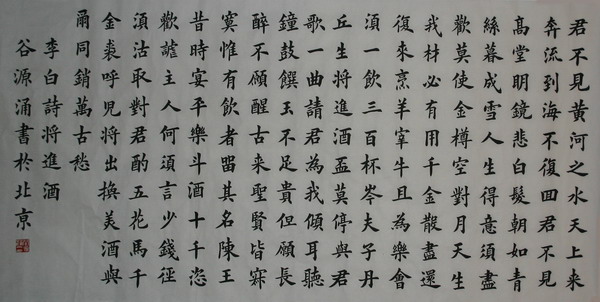 君不見黃河之水天上来
奔流到海不復囬君不見
高堂明鏡悲白髮朝如青
絲暮成雪人生得意須盡
歡莫使金樽空對月天生
我材必有用千金散盡還
復來烹羊宰牛且為樂會
須一飲三百杯岑夫子丹
丘生將進酒盃莫停與君
歌一曲請君為我傾耳聽
鐘鼓饌玉不足貴但願長
醉不願醒古来聖賢皆寂
寞惟有飲者留其名陳王
昔時宴平樂斗酒十千恣
歡謔主人何須言少錢徑
須沽取對君酌五花馬千
金裘呼兒將出換美酒與
爾同銷萬古愁
李白詩將進酒
谷源涌書於北京